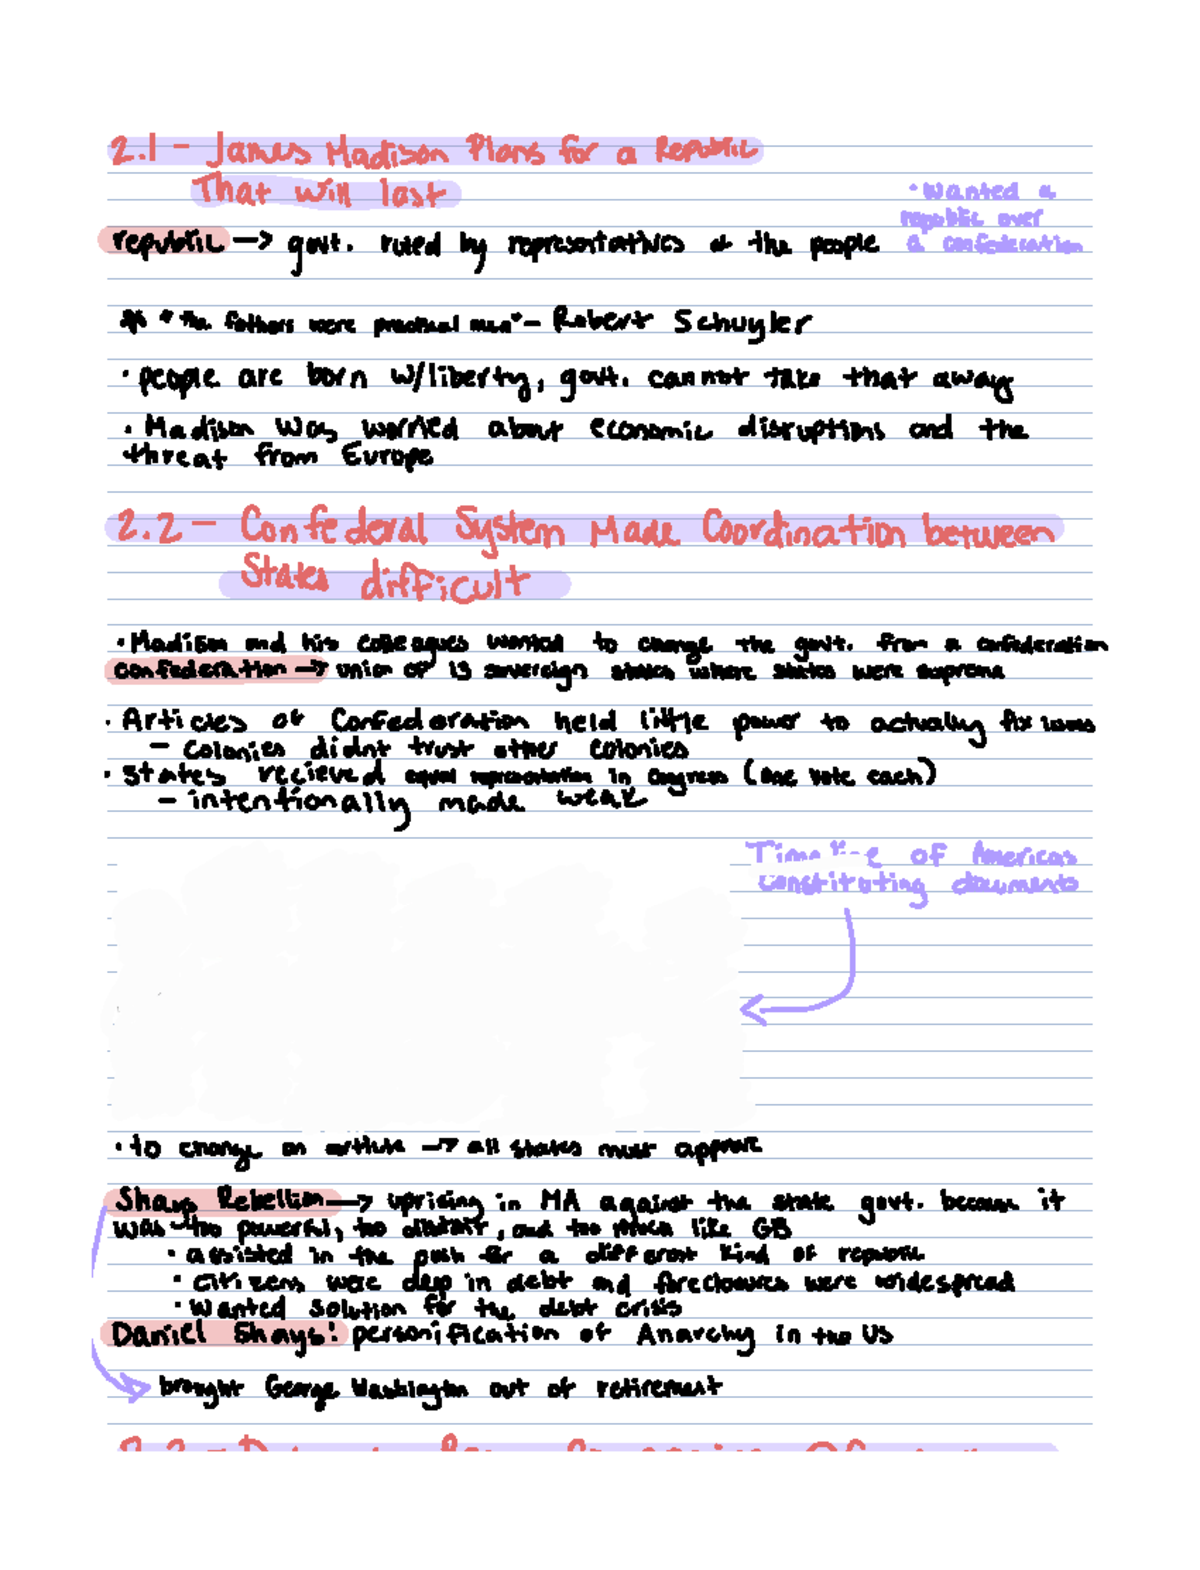 2.1 - James Madison Plans for a Republic
That will last
• Wanted a
republic over
a confederation
republic → govt. ruled by representatives of the people
* "The fathers were practical men" - Robert Schuyler
• people are born w/liberty, govt. cannot take that away
• Madison was worried about economic disruptions and the
threat from Europe
2.2 - Confederal System Made Coordination between
States difficult
• Madison and his colleagues wanted to change the govt. from a confederation
confederation → union of 13 sovereign states where states were supreme
• Articles of Confederation held little power to actually fix issues
- colonies didnt trust other colonies
• states recieved equal representation in Congress (one vote each)
- intentionally made weak
Timeline of Americas
constituting documents
• to change an article → all states must approve
Shays Rebellion → uprising in MA against the state govt. because it
was too powerful, too distant, and too much like GB
• assisted in the push for a different kind of republic
• citizens were deep in debt and foreclosures were widespread
• wanted solution for the debt crisis
Daniel Shays: personification of Anarchy in the US
brought George Washington out of retirement